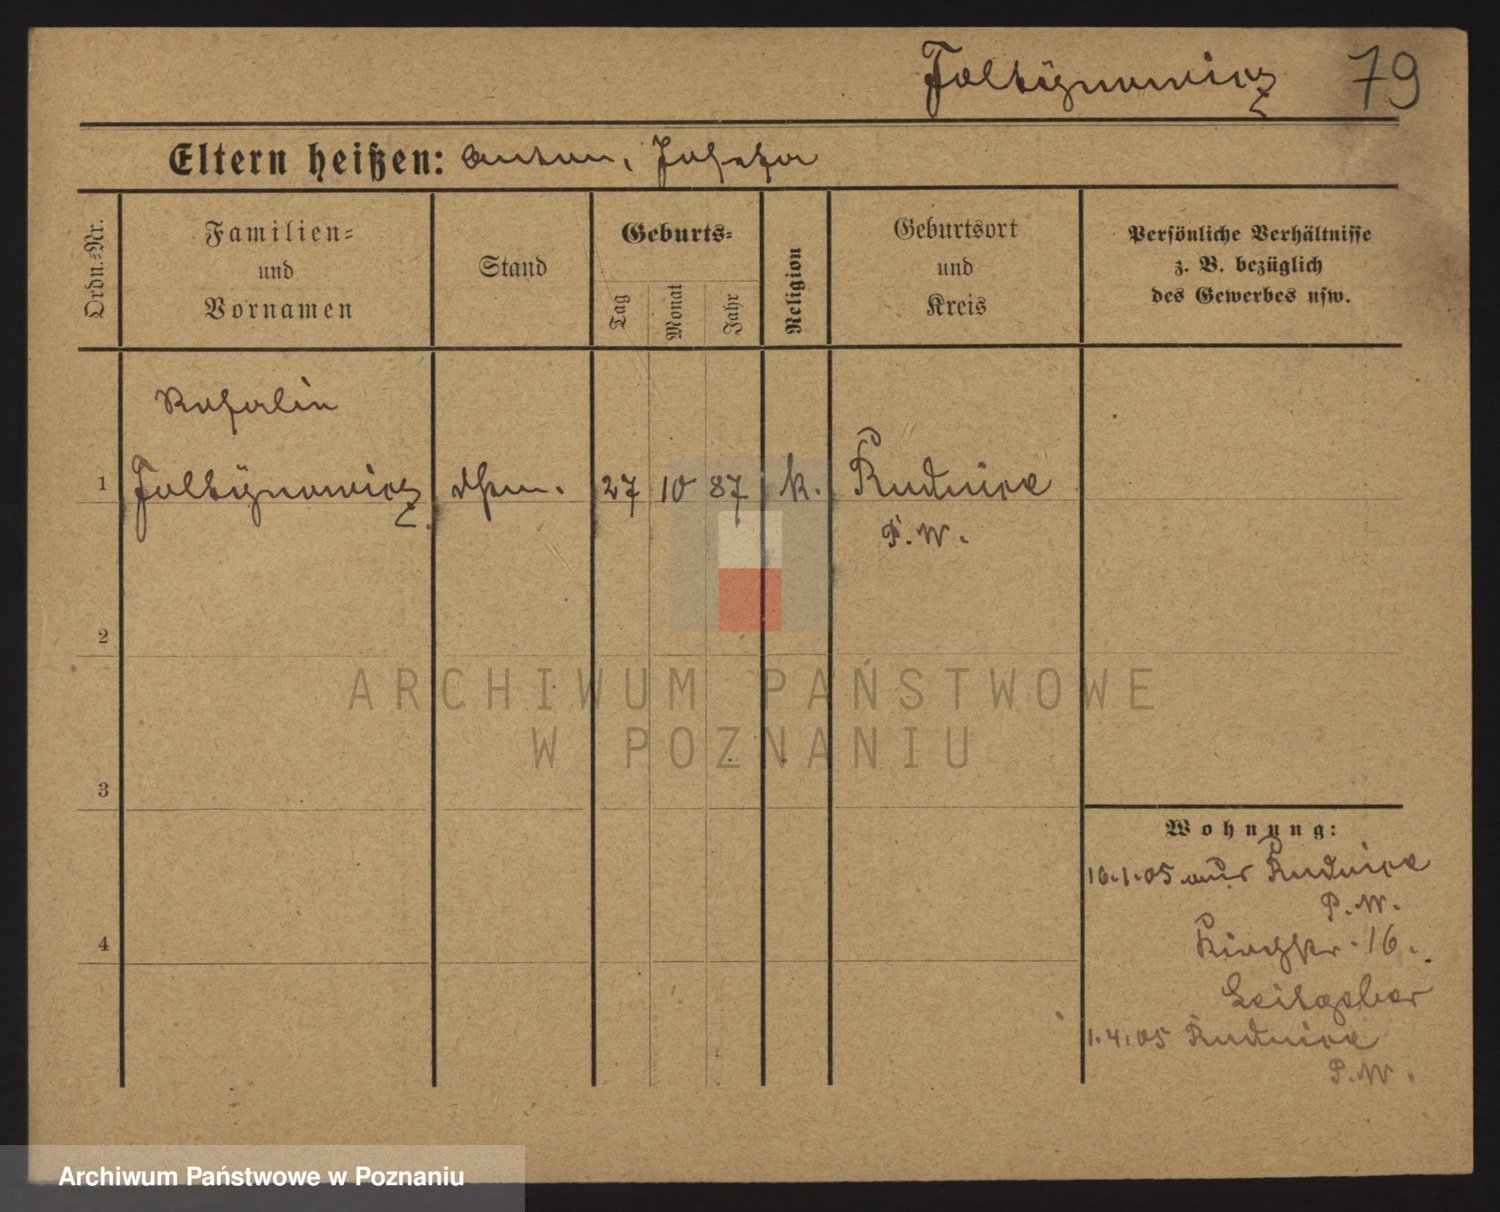 Foltynowicz 79
Eltern heißen: Anton, Josefa
Ordn.=Nr.
Familien=
und
Vornamen
Stand
Geburts=
Tag
Monat
Jahr
Religion
Geburtsort
und
Kreis
Persönliche Verhältnisse
z. B. bezüglich
des Gewerbes usw.
Rosalie
1 Foltÿnowicz 27 10 87 k. Rudnicze
P. W.
2
ARCHIWUM PAŃSTWOWE
W POZNANIU
3
Wohnung:
16.1.05 aus Rudnicze
P. W.
4
Kirchstr. 16.
Leitgeber
1.4.05 Rudnicze
P. W.
Archiwum Państwowe w Poznaniu